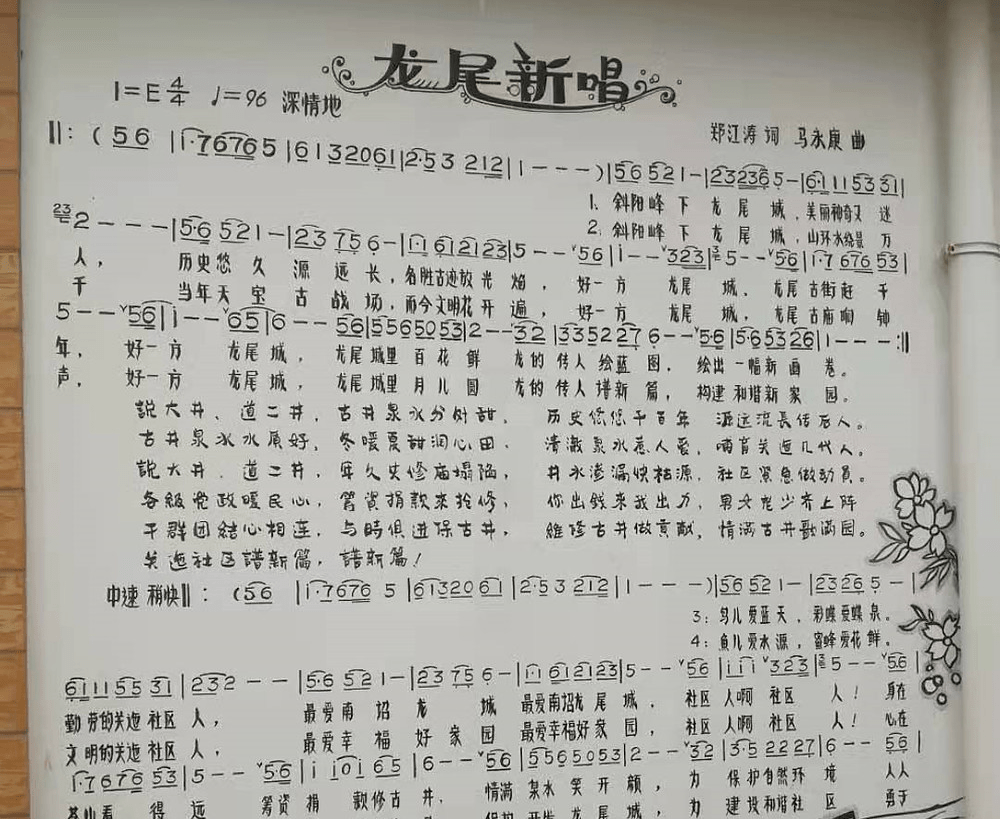 龙尾新唱
1=E 4/4 ♩=96 深情地
郑江涛 词 马永康 曲
‖: ( 56 | 1·7676 5 | 6132061 | 2·53 212 | 1 - - - ) | 56 52 1 - | 23236 5 - | 61 11 53 31 |
1. 斜阳峰 下 龙 尾 城, 美丽神奇又 迷
2. 斜阳峰 下 龙 尾 城, 山环水绕景 万
2 - - - | 5·6 52 1 - | 23 75 6 - | 1·1 61 21 23 | 5 - - 56 | 1 - - 323 | 5 - - 56 | 1·7 676 53 |
人, 历史悠 久 源 远 长, 名胜古迹放 光 焰, 好一 方 龙尾 城、 龙尾 古街赶 千
千 当年天 宝 古 战 场, 而今文明花 开 遍, 好一 方 龙尾 城, 龙尾 古庙响 钟
5 - - 56 | 1 - - 65 | 6 - - 56 | 5 56 50 53 | 2 - - 32 | 33 52 27 6 - - 56 | 5·6 53 26 | 1 - - - :‖
年, 好一 方 龙尾 城, 龙尾 城里 百 花 鲜 龙的 传人 绘蓝 图, 绘出 一幅新 画 卷。
声, 好一 方 龙尾 城, 龙尾 城里 月 儿 圆 龙的 传人 谱新 篇, 构建 和谐新 家 园。
説大井、道二井, 古井泉水分外甜, 历史悠悠千百年 源远流長传后人。
古井泉水水质好, 冬暖夏甜润心田, 清澈泉水惹人爱, 哺育关迤几代人。
説大井、道二井, 年久失修庙塌陷, 井水渗漏快枯源, 社区紧急做动員。
各級党政暖民心, 筹資捐款來抢修, 你出钱来我出力, 男女老少齐上阵
干群团結心相连, 与時俱进保古井, 維修古井做贡献, 情满古井歌满园。
关迤社区譜新篇, 譜新篇!
中速 稍快‖: ( 56 | 1·7676 5 | 61320 61 | 2·53 212 | 1 - - - ) | 56 52 1 - | 23 26 5 - |
3: 鸟儿 爱蓝 天, 彩蝶 爱蝶 泉。
4: 鱼儿 爱水 源, 蜜蜂 爱花 鲜。
61 11 55 31 | 232 - - | 5·6 52 1 - | 23 75 6 - | 1·1 61 21 23 | 5 - - 56 | 111 323 | 5 - - 56 |
勤劳的关迤 社区 人, 最爱南 诏 龙 城 最爱南诏龙 尾 城, 社区 人啊 社区 人! 身在
文明的关迤 社区 人, 最爱幸 福 好 家 园 最爱幸福好 家 园, 社区 人啊 社区 人! 心在
1·7 676 53 | 5 - - 56 | 1 101 65 | 6 - - 56 | 5 56 50 53 | 2 - - 32 | 3·5 22 27 | 6 - - 56 |
看 得 远 筹资 捐 款修古 井, 情满 泉水 笑 开 颜, 为 保护自然环 境 人人
龙 尾 城, 为 建设和谐社 区 勇于